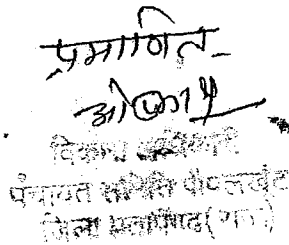 प्रमाणित
विकास अधिकारी
पंचायत समिति पीपलखूंट
जिला प्रतापगढ़ (राज.)